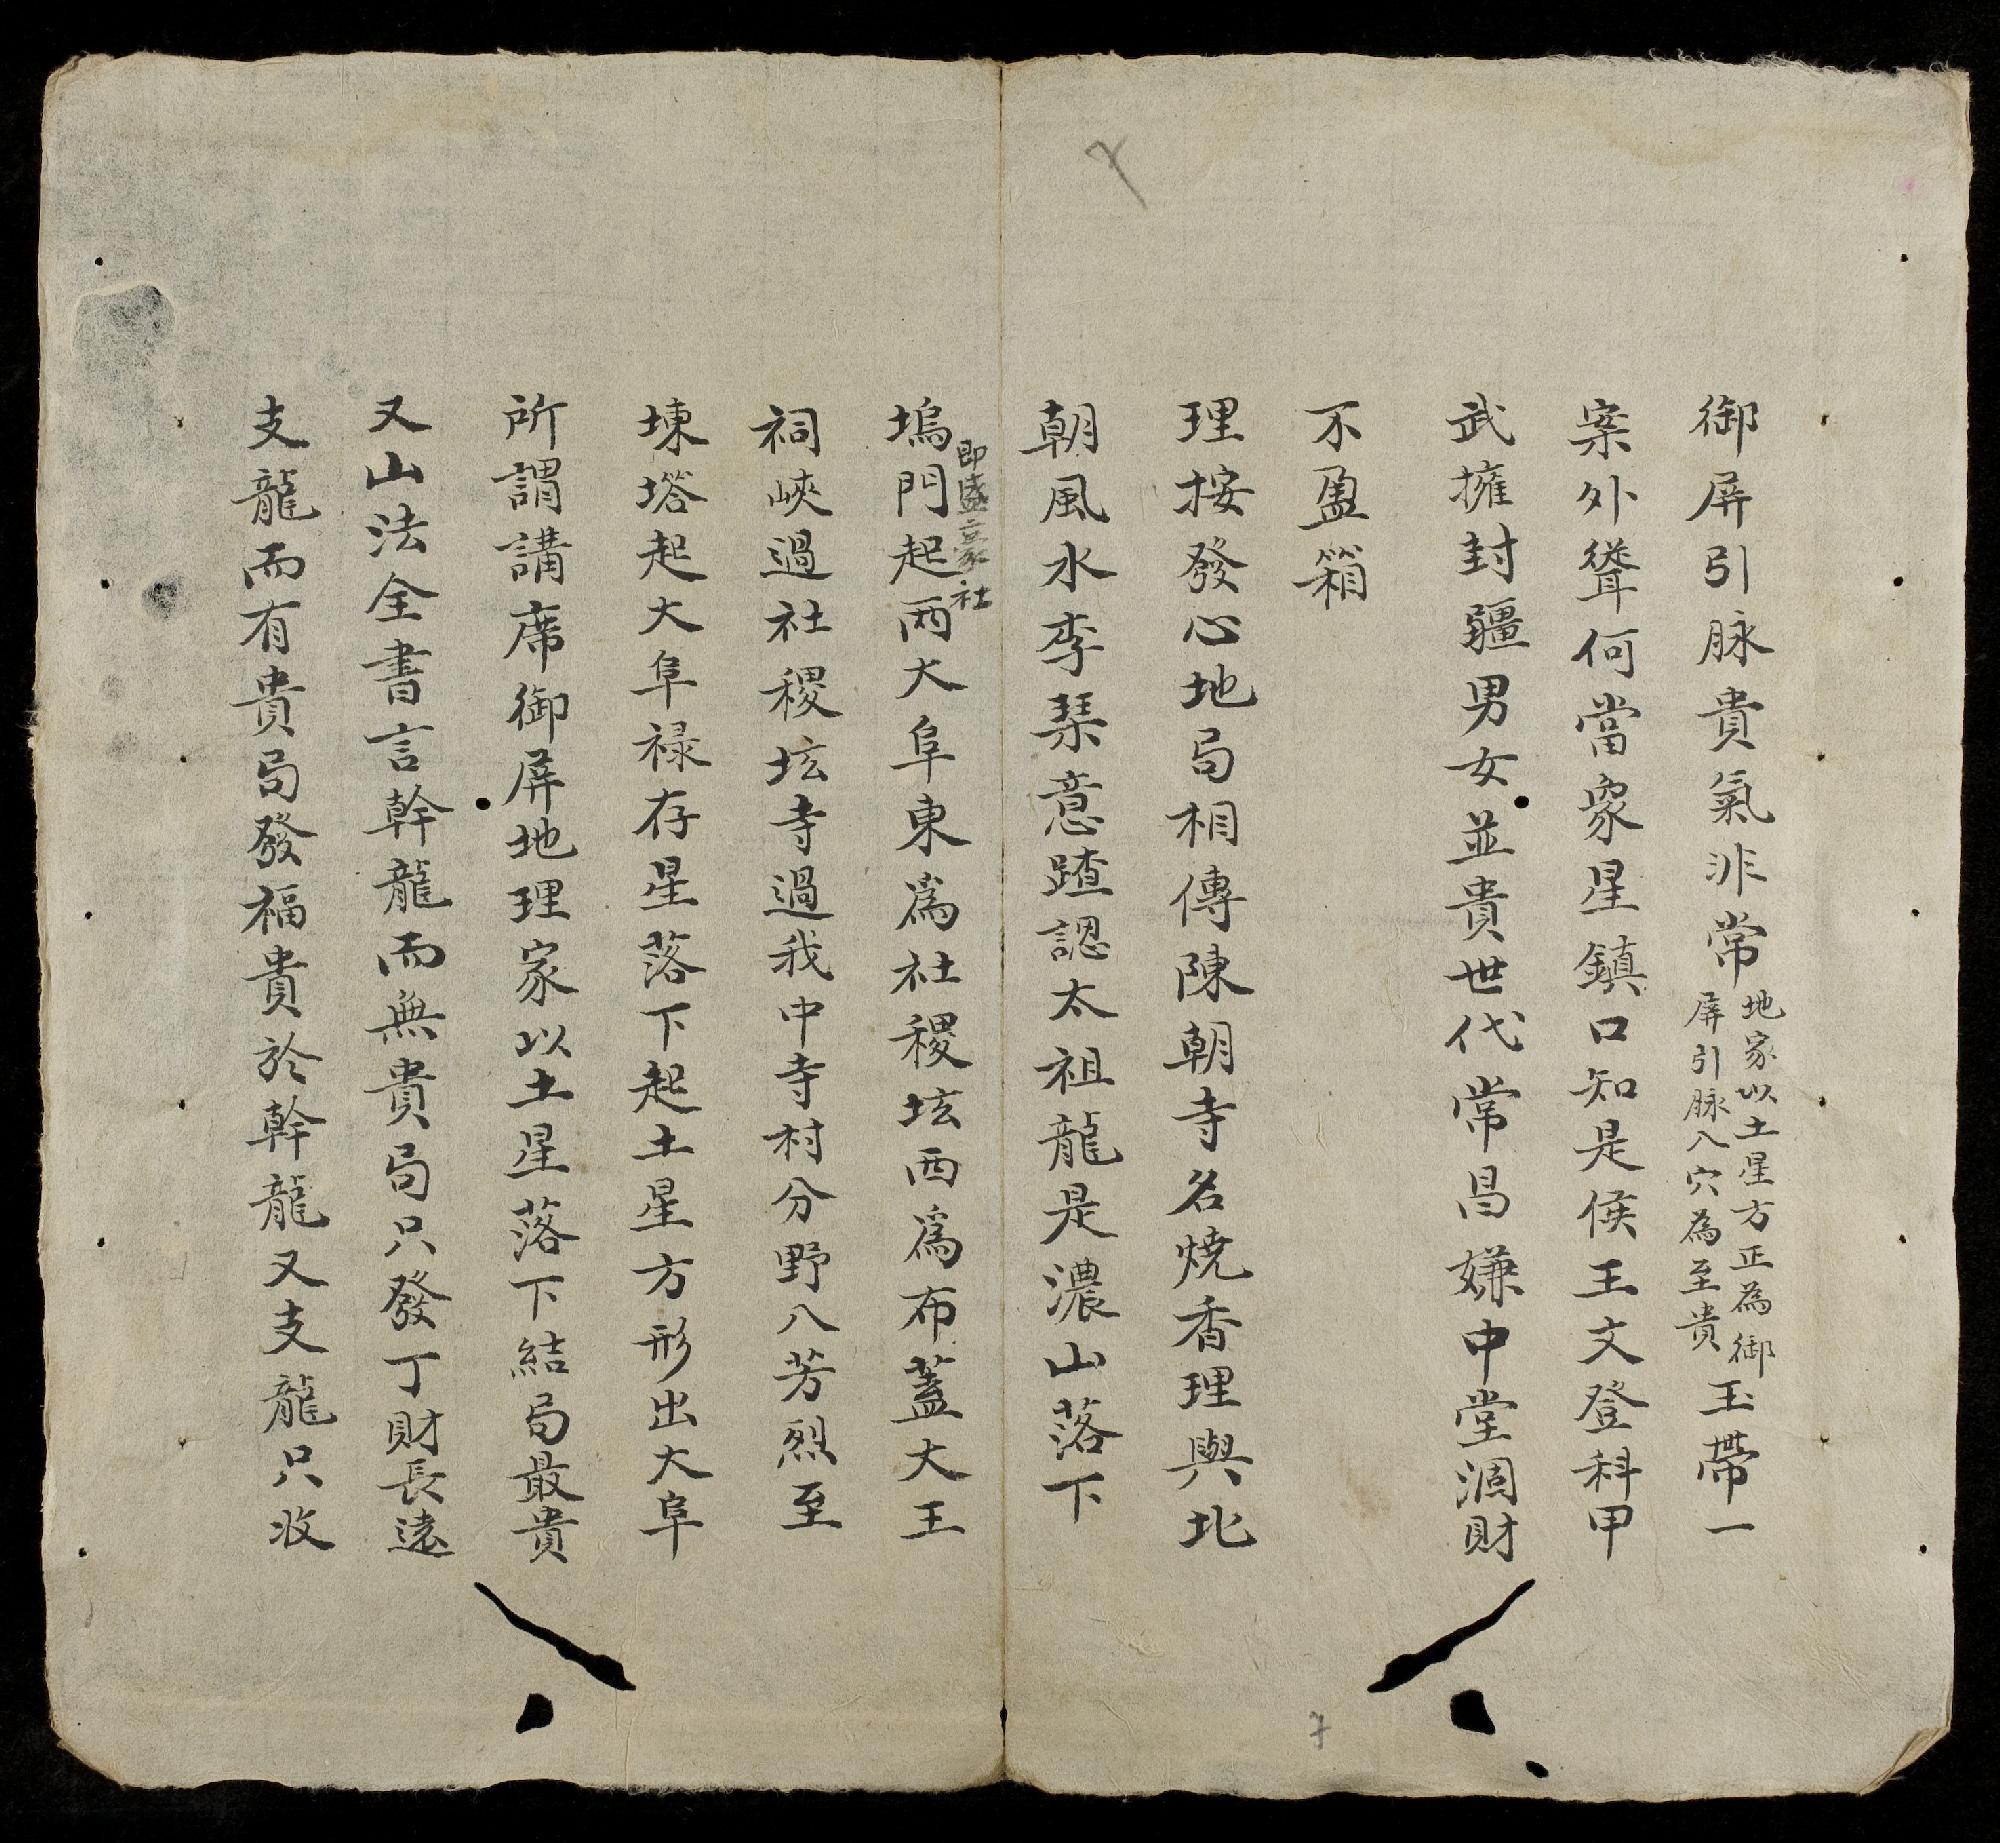 御屏引脉貴氣非常地家以土星方正為御屏引脉入穴為至貴玉帶一
案外聳何當衆星鎮口知是侯王文登科甲
武擁封疆男女並貴世代常昌嫌中堂涸財
不盈箱
理按發心地局相傳陳朝寺名燒香理與北
朝風水李琹意蹅認太祖龍是濃山落下
即盛豪社
塢門起兩大阜東爲社稷坹西爲布蓋大王
祠峽過社稷坹寺過我中寺村分野八芳烈至
埬塔起大阜祿存星落下起土星方形出大阜
所謂講席御屏地理家以土星落下結局最貴
又山法全書言幹龍而無貴局只發丁財長遠
支龍而有貴局發福貴於幹龍又支龍只收
7
7